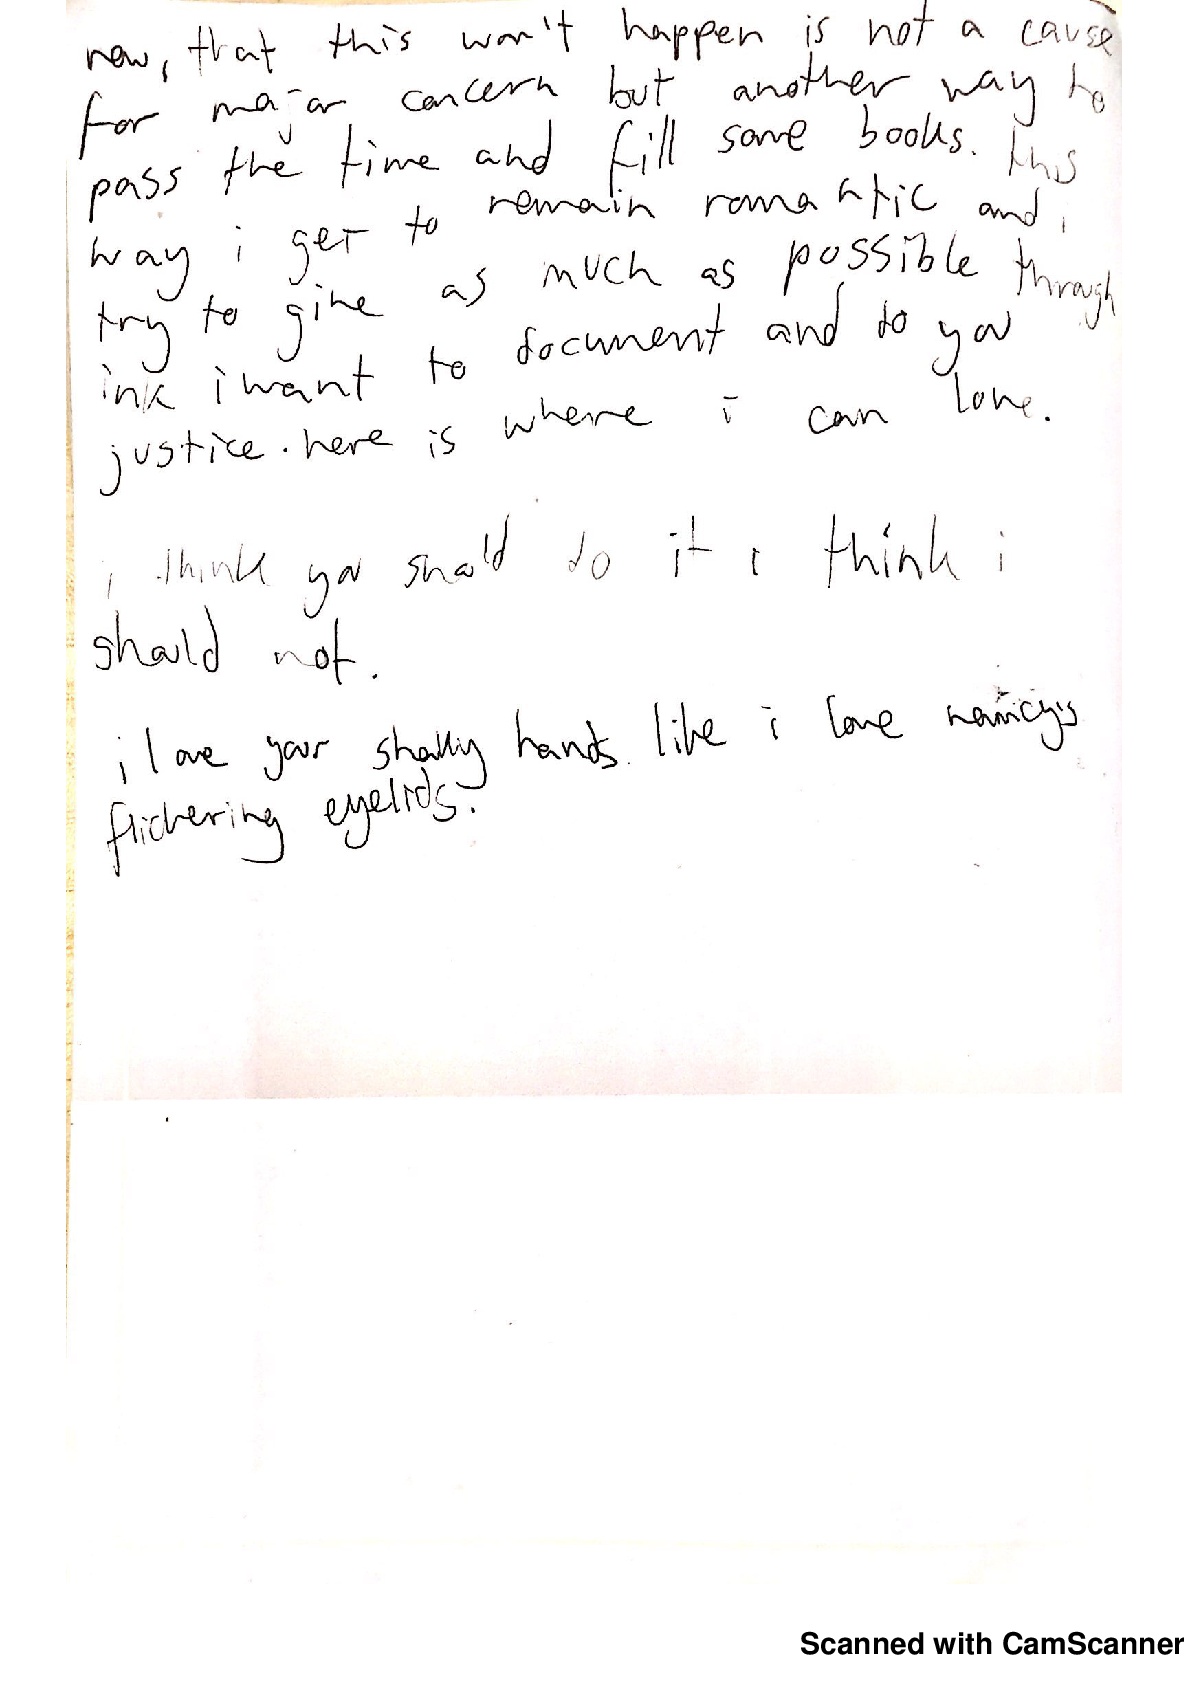 now, that this won't happen is not a cause
for major concern but another way to
pass the time and fill some books. this
way i get to remain romantic and i
try to give as much as possible through
ink i want to document and do you
justice. here is where i can love.
i think you should do it i think i
should not.
i love your shaky hands like i love nancy's
flickering eyelids.
Scanned with CamScanner